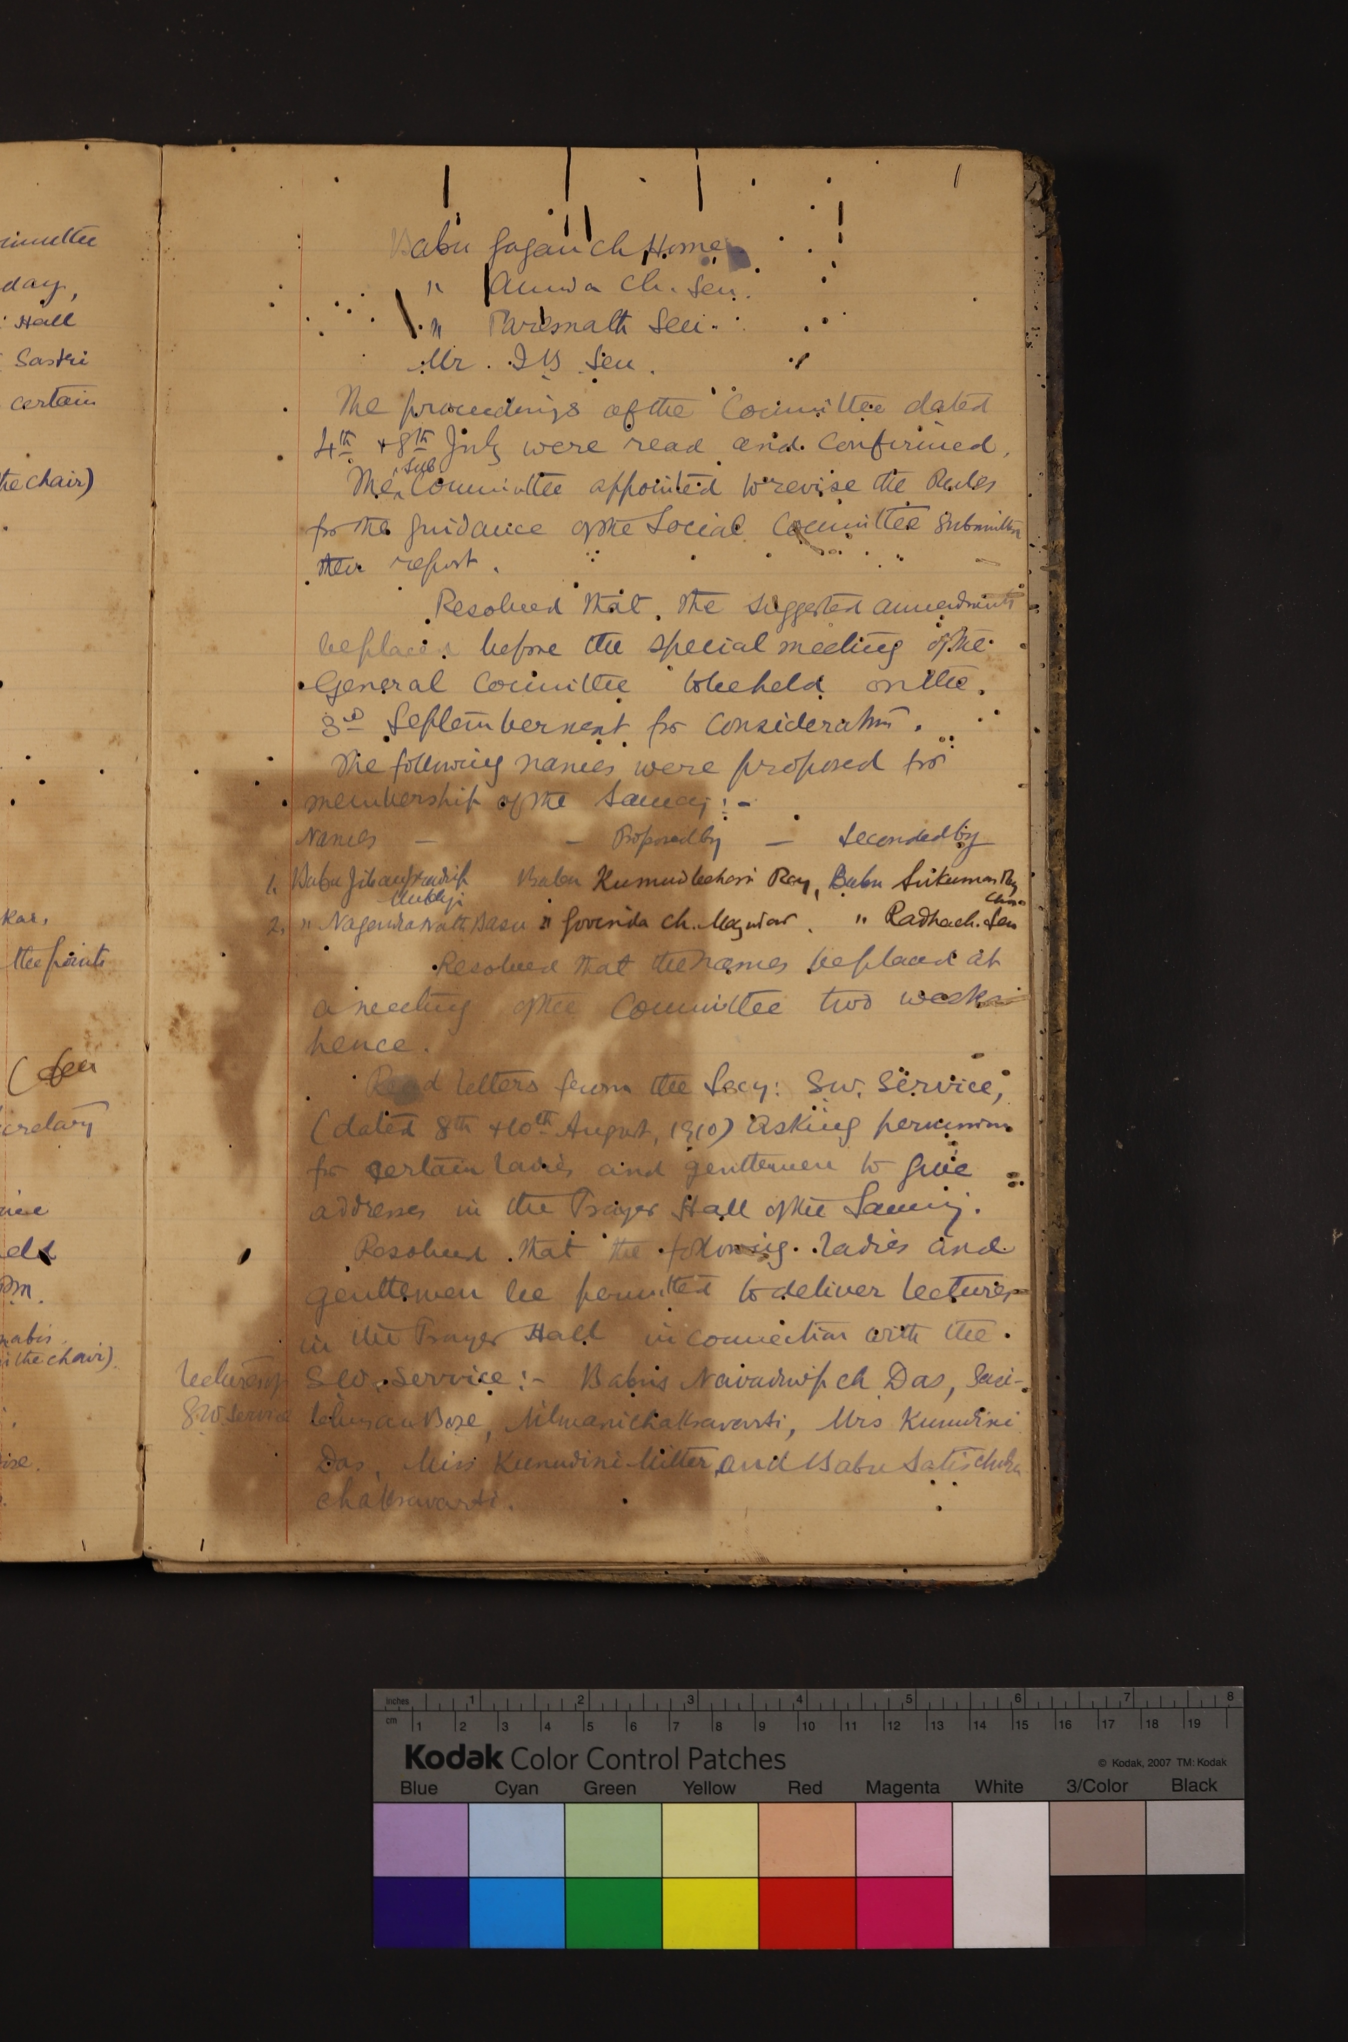 Babu Gagan Ch Home
" Ch. Sen.
" Paresnath Sen.
Mr. I B Sen.
The proceedings of the Committee dated
4th & 8th July were read and confirmed.
The Sub Committee appointed to revise the Rules
for the guidance of the Social Committee submitted
their report.
Resolved that the suggested amendments
be placed before the special meeting of the
General Committee to be held on the
3rd September next for consideration.
The following names were proposed for
membership of the Samaj :-
Names - - Proposed by - Seconded by
1. Babu Babu Kumudbehari Ray, Babu Srikumar
2. " Nagendra Nath Basu " Govinda Ch. Mazumdar. " Radhach. Sen
Resolved that the names be placed at
a meeting of the Committee two weeks
hence.
Read letters from the Secy: S.W. Service,
(dated 8th & 10th August, 1910) asking permission
for certain ladies and gentlemen to give
addresses in the Prayer Hall of the Samaj.
Resolved that the following ladies and
gentlemen be permitted to deliver lectures
in the Prayer Hall in connection with the
Lectures S.W. Service :- Babus Navadwip ch Das, Sasi-
S.W Service bhusan Bose, Nilmani chakravarti, Mrs Kumudini
Das, Miss Kumudini Mitter and Babu Satis
chakravarti.
day,
Hall
Sastri
certain
the chair)
kar,
the points
inches 1 2 3 4 5 6 7 8
cm 1 2 3 4 5 6 7 8 9 10 11 12 13 14 15 16 17 18 19
Kodak Color Control Patches
© Kodak, 2007 TM: Kodak
Blue Cyan Green Yellow Red Magenta White 3/Color Black